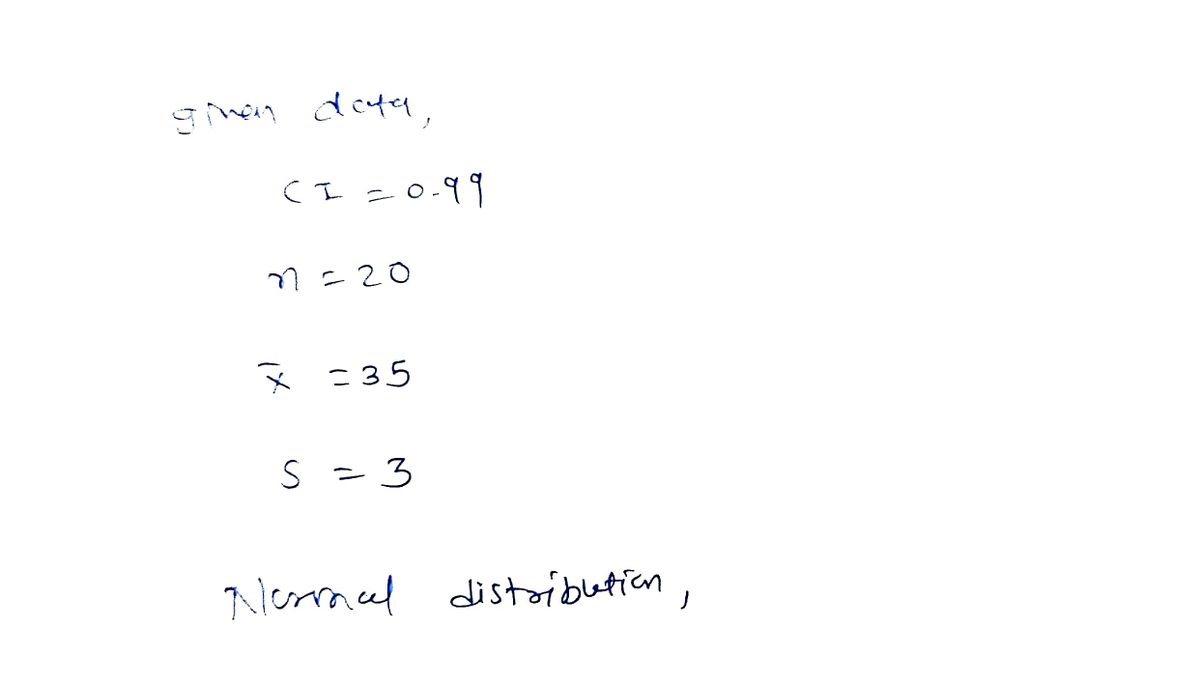 given data,
CI = 0.99
n = 20
x̄ = 35
S = 3
Normal distribution,